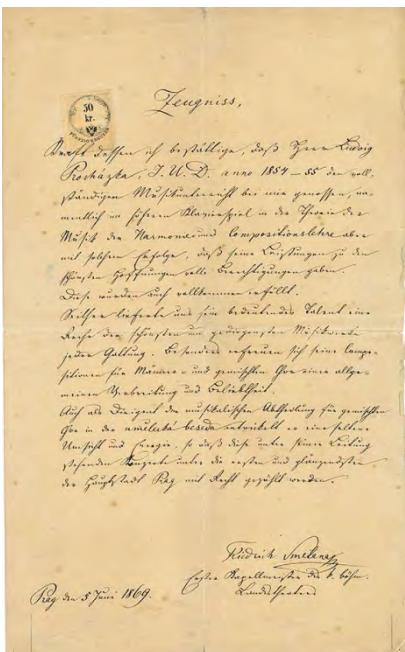 50
kr.
Zeugniss,
Kraft dessen ich bestättige, daß Herr Ludwig
Procházka, J. U. D. anno 1854 – 55 den voll-
ständigen Musikunterricht bei mir genossen, na-
mentlich im höhern Klavierspiel in der Theorie der
Musik der Harmonie und Compositionslehre aber
mit solchem Erfolge, daß seine Leistungen zu den
schönsten Hoffnungen volle Berechtigung gaben.
Diese wurden auch vollkommen erfüllt.
Seither lieferte uns sein bedeutendes Talent eine
Reihe der schönsten und gediegensten Musikwerke
jeder Gattung. Besonders erfreuen sich seine Compo-
sitionen für Männer- und gemischten Chor einer allge-
meinen Verbreitung und Beliebtheit.
Auch als Dirigent der musikalischen Abtheilung für gemischten
Chor in der umělecká beseda entwickelt er eine seltene
Umsicht und Energie, so daß diese unter seiner Leitung
stehenden Konzerte unter die ersten und glänzendsten
der Hauptstadt Prag mit Recht gezählt werden.
Friedrich Smetana
Erster Kapellmeister des k. böhm.
Landestheaters
Prag den 5 Juni 1869.